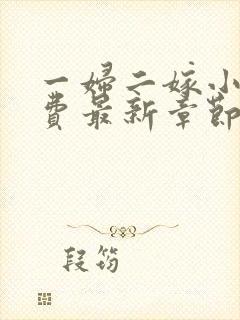 一婦二嫁小
費最新章節
段筠